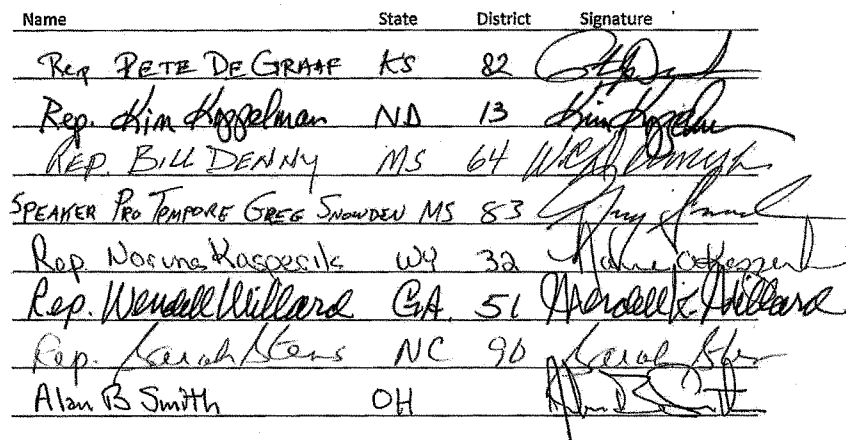 Name State District Signature
Rep PETE DE GRAAF KS 82
Rep. Kim Koppelman ND 13 Kim Koppelman
REP. BILL DENNY MS 64
SPEAKER PRO TEMPORE GREG SNOWDEN MS 83
Rep. Norine Kasperik WY 32
Rep. Wendell Willard GA. 51 Wendell K Willard
Rep. Sarah Stevens NC 90 Sarah Stevens
Alan B Smith OH Alan B Smith